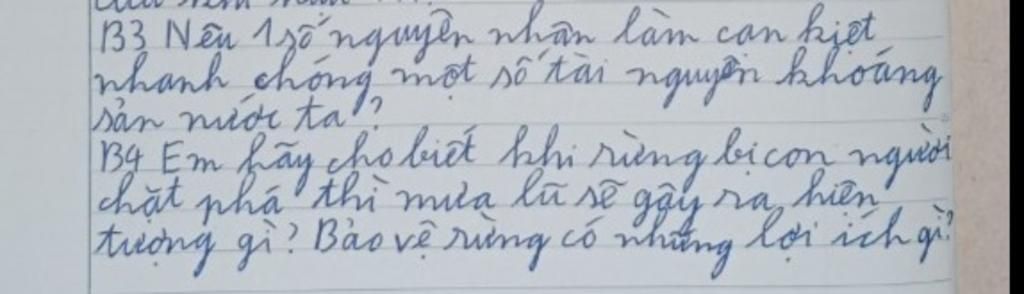 B3 Nêu 1 số nguyên nhân làm cạn kiệt
nhanh chóng một số tài nguyên khoáng
sản nước ta?
B4 Em hãy cho biết khi rừng bị con người
chặt phá thì mưa lũ sẽ gây ra hiện
tượng gì? Bảo vệ rừng có những lợi ích gì?